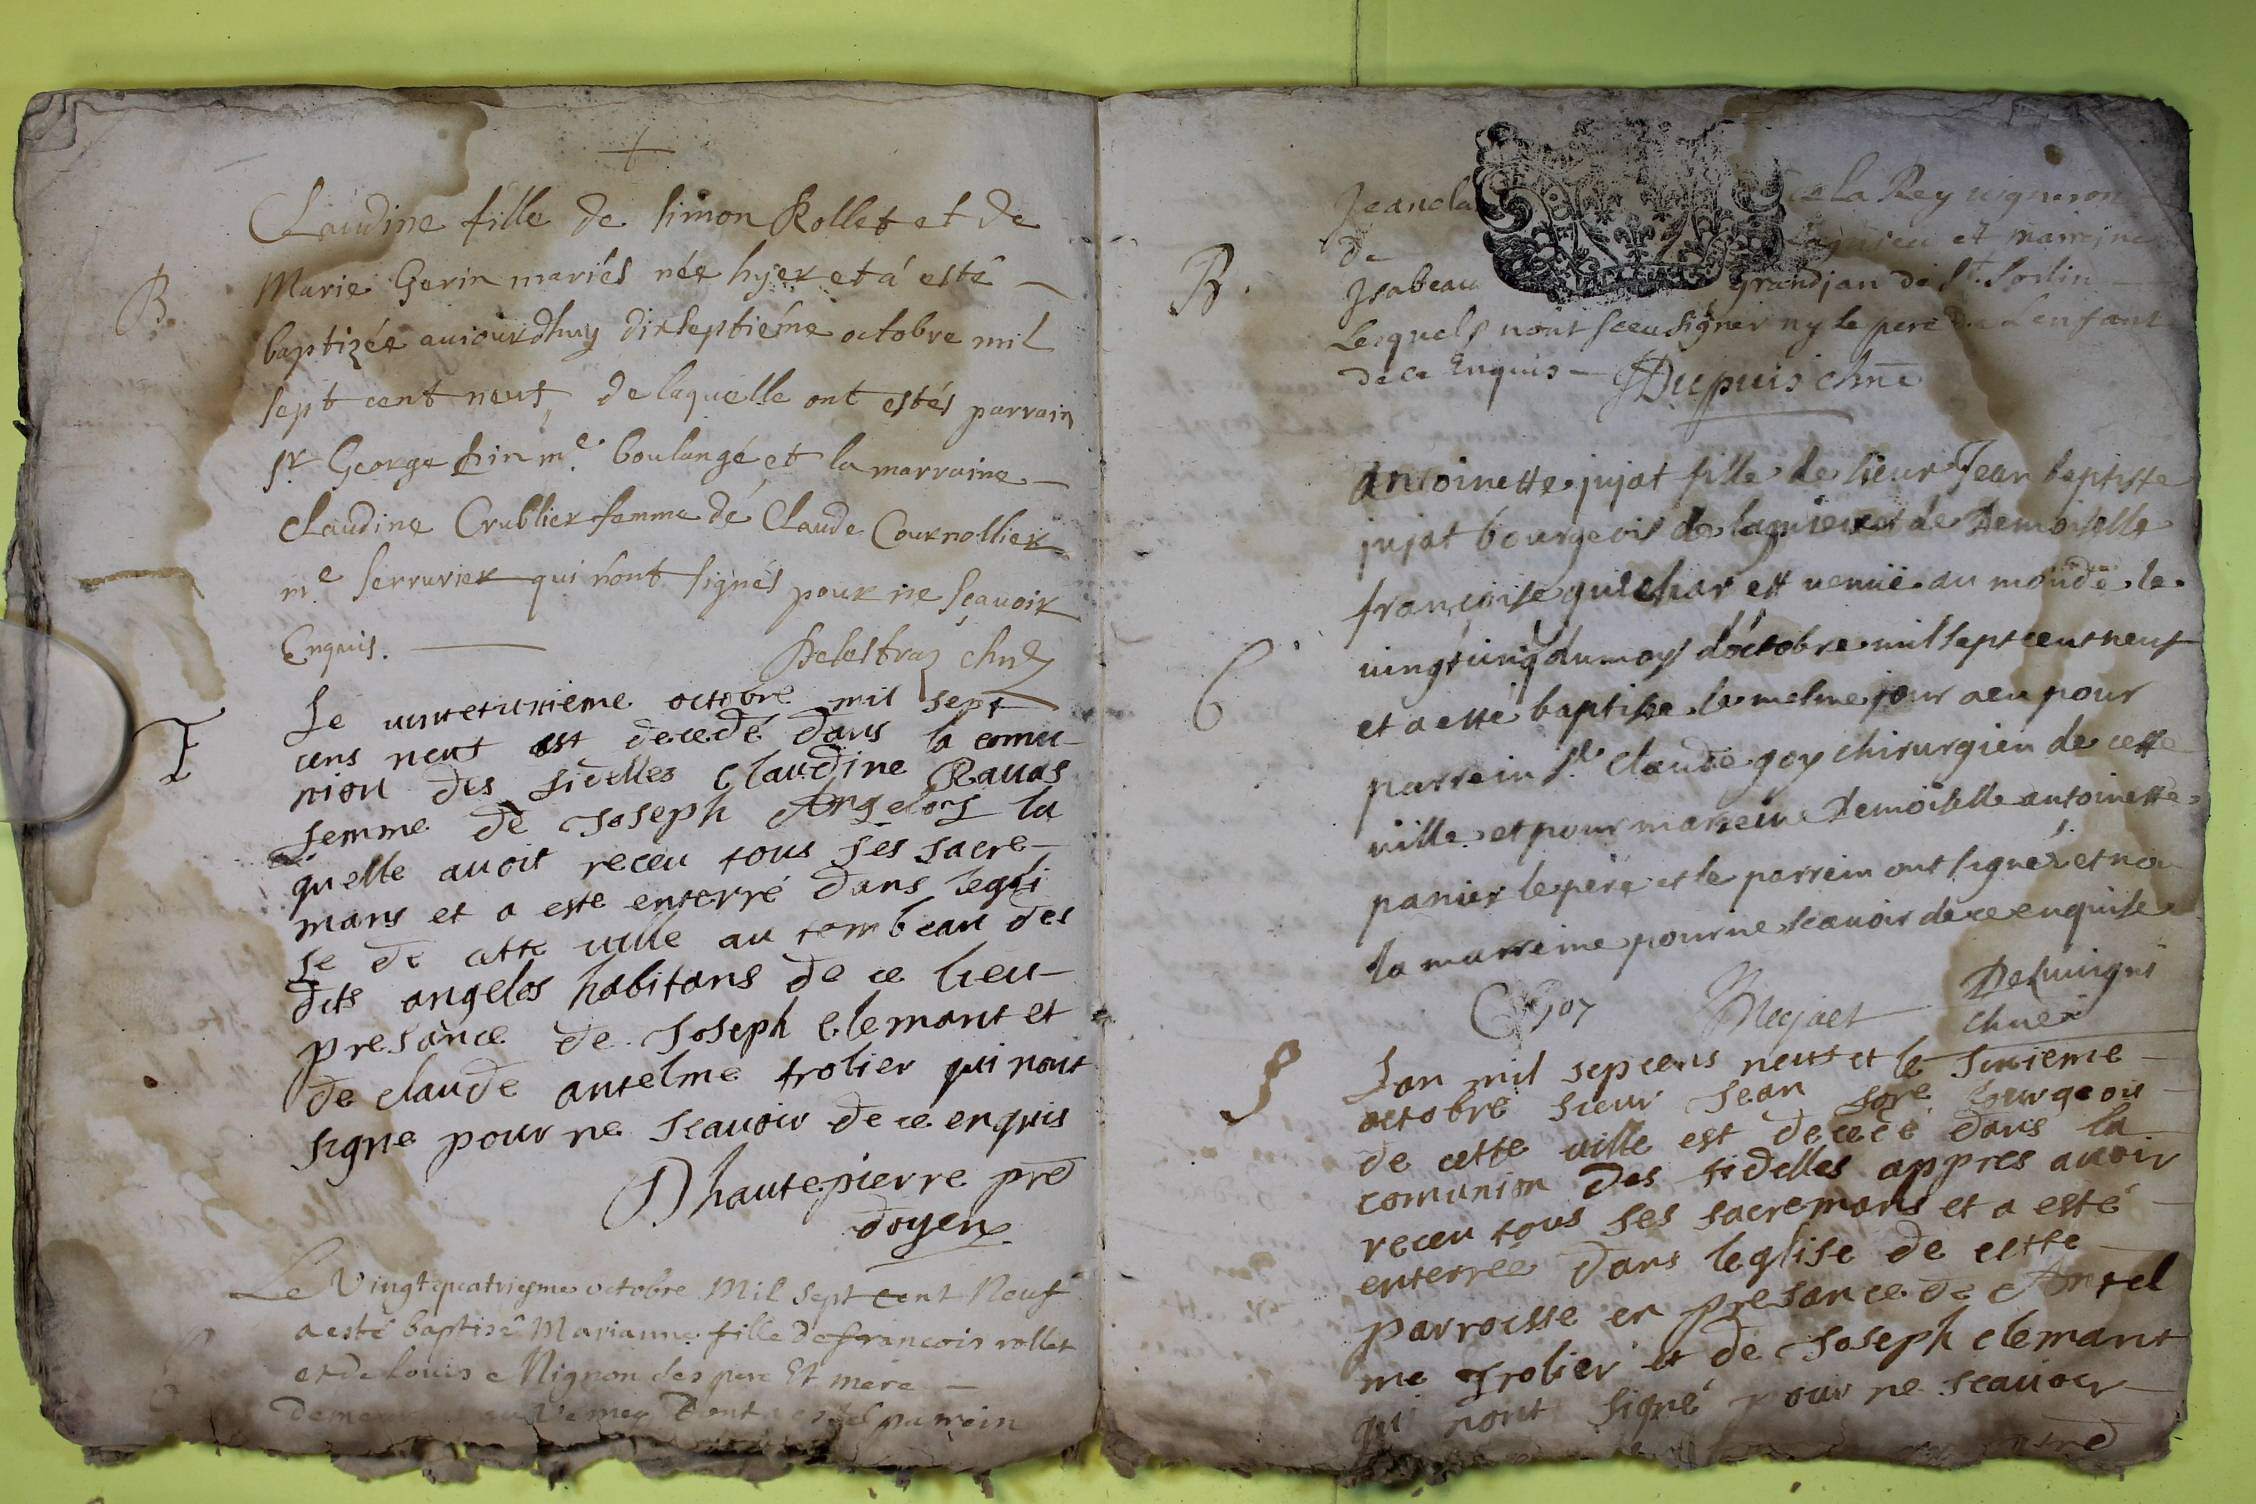 Claudine fille de Simon Rollet et de
Marie Gerin mariés née hyer et á esté
B.
baptizée auiourdhuy dixseptiéme octobre mil
sept cent neuf, de laquelle ont estés parrain
Sr George hin me boulangé et la marraine
Claudine Crublier femme de Claude Cournollier
me serrurier qui n'ont signés pour ne sçavoir
Enquis.
Delestraz chne
Le octobre mil sept
T
cens neuf est decedé dans la comu-
nion des fidelles Claudine Rauas
femme de Joseph Angelos la
quelle avoit receu tous ses sacre-
mans et a este enterré dans legli
se de cette ville au tombeau des
dits angelos habitans de ce lieu
presance de Joseph clemant et
de claude antelme trolier qui nont
signe pour ne scauoir de ce enquis
Dhautepierre pre
doyen
Le Vingtquatriesme octobre Mil Sept Cent Neuf
a esté baptisé Marianne fille de francois rollet
et de Louise Mignon ses pere Et mere
parrein
Jeancla La Rey vigneron
de et marreine
B.
Isabeau grandjan de St. Sorlin
Lesquels n'ont sceu signer ny le pere de Lenfant
de ce Enquis Dupuis chne
Antoinette jujat fille de sieur Jean baptiste
jujat bourgeois de lagnieu et de Demoiselle
françoise guichar est venüe au monde le
vingtcinq du moys d'octobre mil sept cent neuf
6
et a esté baptisée le mesme jour a eu pour
parrein Sr. Claude goy chirurgien de cette
ville et pour marreine Demoiselle antoinette
panier le pere et le parrein ont signez et non
la marreine pour ne scavoir de ce enquise
Goy Jujaet
chne
Lan mil sepcens neuf et le
octobre sieur Jean bourgeois
de cette ville est decedé dans la
comunion des fidelles appres avoir
receu tous ses sacremans et a esté
enterrée dans leglise de cette
parroisse en presance de Antel
me Trolier et de Joseph clemant
qui nont signé pour ne scauoir